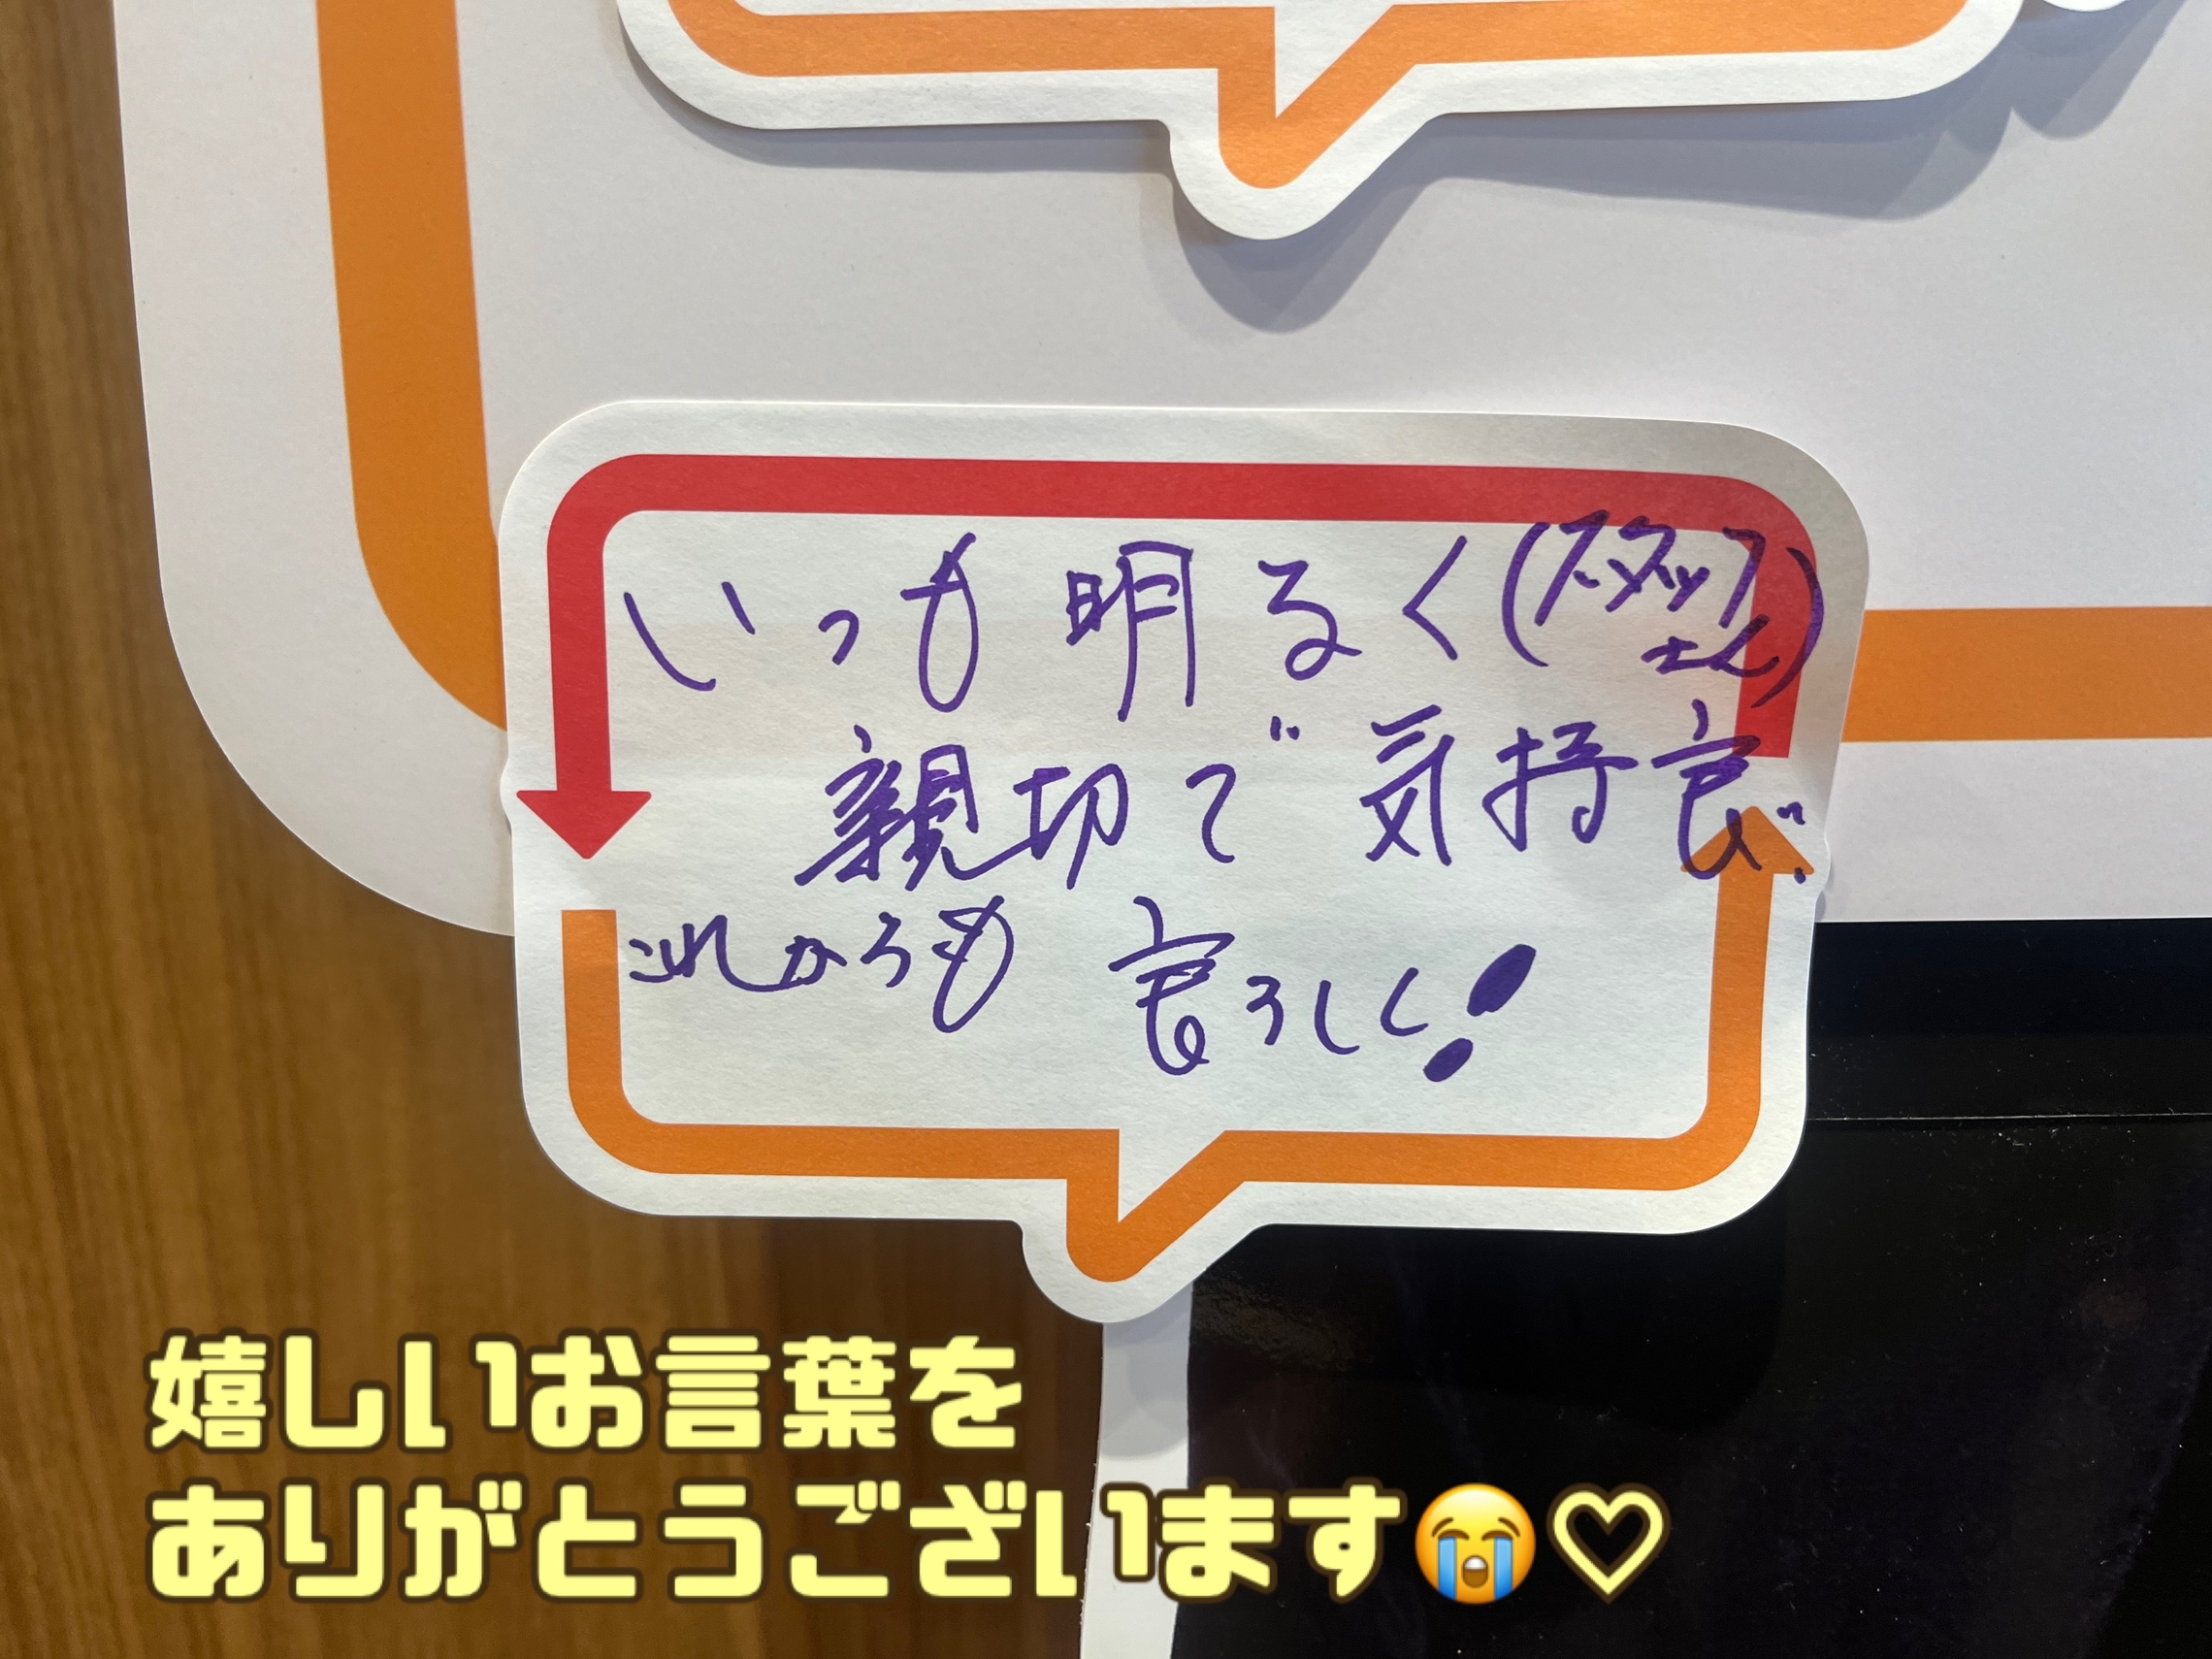 いつも明るく(スタッフさん)
親切で気持良く"
これからも 良ろしく!
嬉しいお言葉を
ありがとうございます😭♡